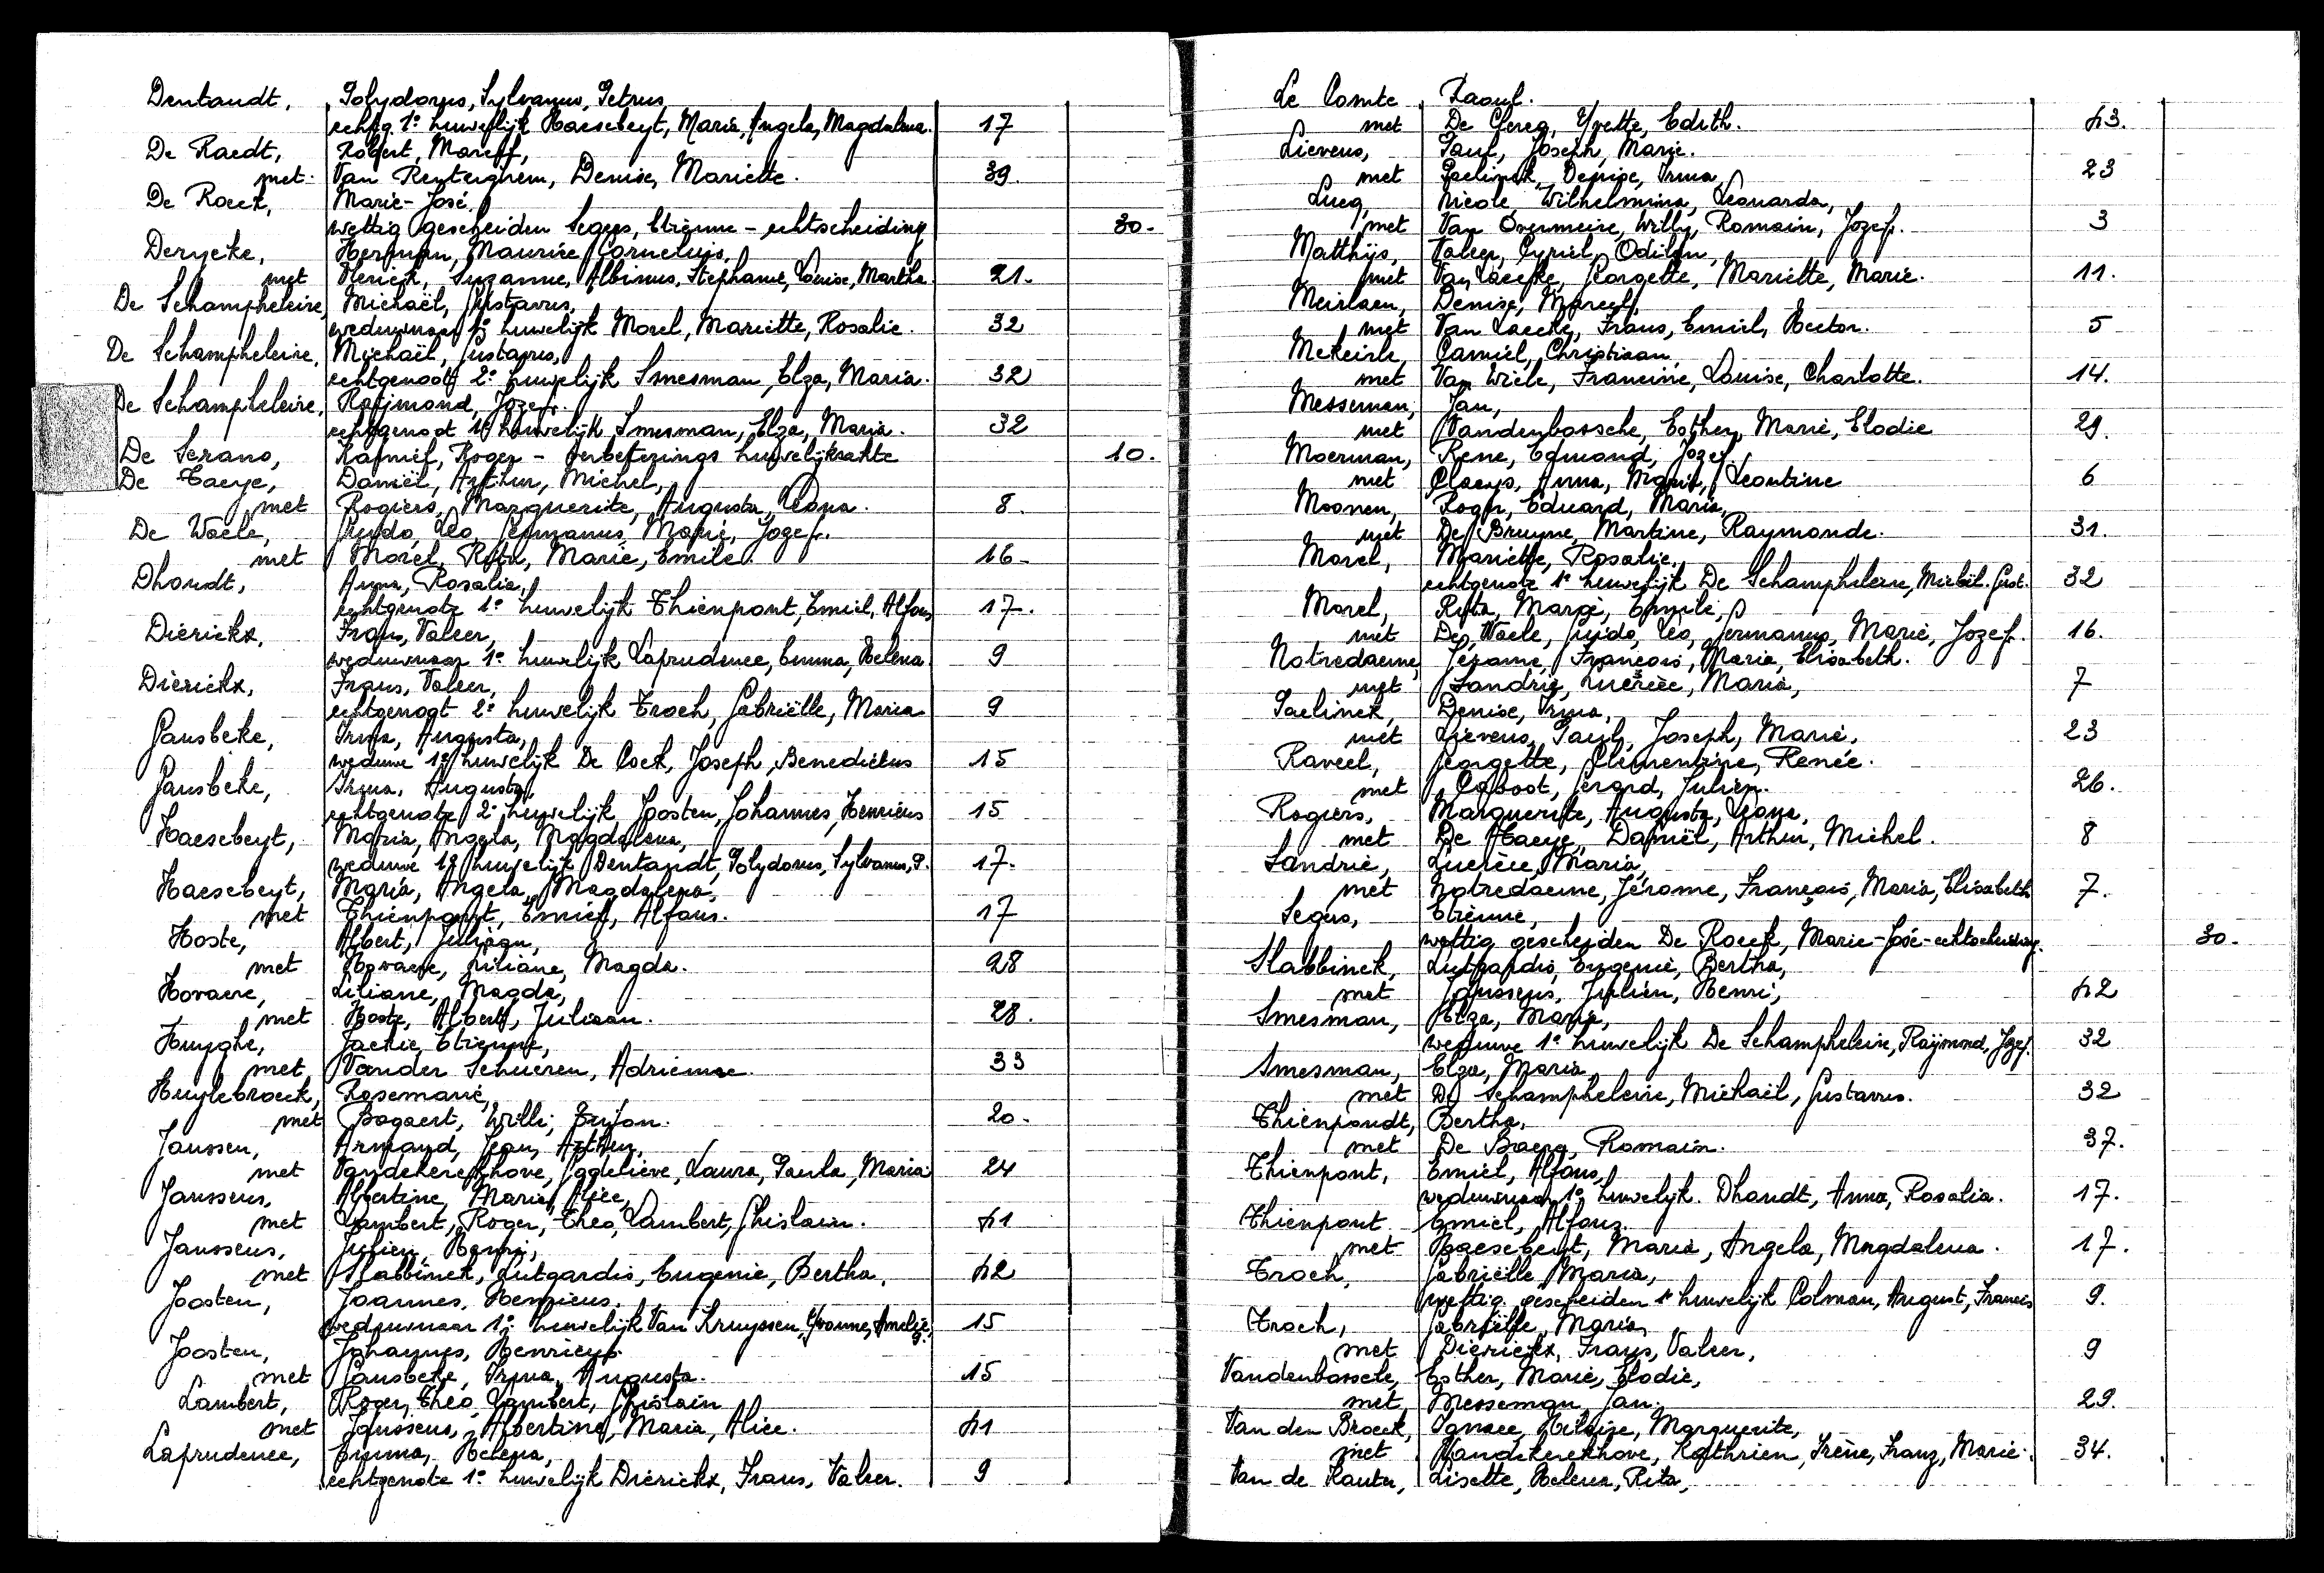 Dentandt, Polydorus, Sylvanus, Petrus
echtg. 1e huwelijk Haesebeyt, Maria, Angela, Magdalena. 17
De Raedt, Robert, Marcel,
met Van Renterghem, Denise, Mariette. 39.
De Roeck, Marie-José,
wettig gescheiden Segers, Etienne - echtscheiding 30-
Derycke, Herman, Maurice, Cornelius,
met Suzanne, Albinus, Stephanie, Louise, Martha. 21.
De Schampheleire, Michaël, Gustavus,
weduwnaar 1e huwelijk Morel, Mariette, Rosalie. 32
De Schampheleire, Michaël, Gustavus,
echtgenoot 2e huwelijk Smesman, Elza, Maria. 32
De Schampheleire, Raijmond, Jozef.
echtgenoot 1e huwelijk Smesman, Elza, Maria. 32
De Serano, Kamiel, Roger - verbeterings huwelijksakte 10.
De Taeye, Daniël, Arthur, Michel,
met Rogiers, Marguerite, Augusta, Leona. 8.
De Waele, Guido, Leo, Germanus, Marie, Jozef.
met Morel, Rita, Marie, Emile. 16-
Dhondt, Anna, Rosalia,
echtgenote 1e huwelijk Thienpont, Emiel, Alfons 17.
Dierickx, Frans, Valeer,
weduwnaar 1e huwelijk Laprudence, Emma, Helena. 9
Dierickx, Frans, Valeer,
echtgenoot 2e huwelijk Troch, Gabriëlle, Maria 9
Gansbeke, Irma, Augusta,
weduwe 1e huwelijk De Cock, Joseph, Benedictus 15
Gansbeke, Irma, Augusta,
echtgenote 2e huwelijk Joosten, Johannes, Henricus 15
Haesebeyt, Maria, Angela, Magdalena,
weduwe 1e huwelijk Dentandt, Polydorus, Sylvanus, P. 17.
Haesebeyt, Maria, Angela, Magdalena,
met Thienpont, Emiel, Alfons. 17
Hoste, Albert, Juliaan,
met Hovaere, Liliane, Magda. 28
Hovaere, Liliane, Magda,
met Hoste, Albert, Juliaan. 28.
Huyghe, Jackie, Etienne,
met Vander Schueren, Adrienne. 33
Huylebroeck, Rosemarie,
met Bogaert, Willi, 20.
Janssen, Armand, Jean, Arthur,
met Vandekerckhove, Godelieve, Laura, Paula, Maria 24
Janssens, Albertine, Maria, Alice,
met Lambert, Roger, Theo, Lambert, Ghislain. 41
Janssens, Julien, Henri,
met Slabbinck, Lutgardis, Eugenie, Bertha, 42
Joosten, Joannes, Henricus.
weduwnaar 1e huwelijk Van Kruyssen, Yvonne, Amelie, 15
Joosten, Johannes, Henricus.
met Gansbeke, Irma, Augusta. 15
Lambert, Roger, Theo, Lambert, Ghislain
met Janssens, Albertine, Maria, Alice. 41
Laprudence, Emma, Helena,
echtgenote 1e huwelijk Dierickx, Frans, Valeer. 9
Le Comte, Raoul.
met De Clercq, Yvette, Edith. 43.
Lievens, Paul, Joseph, Marie.
met Paelinck, Denise, Irma, 23
Lucq, Nicole, Wilhelmina, Leonarda,
met Van Overmeire, Willy, Romain, Jozef. 3
Matthijs, Valeer, Cyriel, Odilon,
met Van Laecke, Georgette, Mariette, Marie. 11.
Meirlaen, Denise, Marcel,
met Van Laecke, Frans, Emiel, Hector. 5
Mekeirle, Camiel, Christiaan,
met Van Wiele, Francine, Louise, Charlotte. 14.
Messeman, Jan,
met Vandenbossche, Esther, Marie, Elodie 29.
Moerman, Rene, Edmond, Jozef,
met Claeys, Anna, Leontine 6
Moonen, Roger, Eduard, Maria,
met De Bruyne, Martine, Raymonde. 31.
Morel, Mariette, Rosalie,
echtgenote 1e huwelijk De Schampheleire, Michël. Gust. 32
Morel, Rita, Marie, Emile,
met De Waele, Guido, Leo, Germanus, Marie, Jozef. 16.
Notredaeme, Jérome, François, Maria, Elisabeth.
met Landrie, Lucrèce, Maria, 7
Paelinck, Denise, Irma,
met Lievens, Paul, Joseph, Marie. 23
Raveel, Georgette, Clementine, Renée.
met Caboot, Gerard, Julien. 26.
Rogiers, Marguerite, Augusta, Leona,
met De Taeye, Daniël, Arthur, Michel. 8
Landrie, Lucrèce, Maria,
met Notredaeme, Jérome, François, Maria, Elisabeth 7.
Segers, Etienne,
wettig gescheiden De Roeck, Marie-José-echtscheiding. 30.
Slabbinck, Lutgardis, Eugenie, Bertha,
met Janssens, Julien, Henri, 42
Smesman, Elza, Maria,
weduwe 1e huwelijk De Schampheleire, Raijmond, Jozef. 32
Smesman, Elza, Maria
met De Schampheleire, Michaël, Gustavus. 32
Thienpondt, Bertha,
met De Baere, Romain. 37.
Thienpont, Emiel, Alfons,
weduwnaar 1e huwelijk. Dhondt, Anna, Rosalia. 17.
Thienpont Emiel, Alfons.
met Haesebeyt, Maria, Angela, Magdalena. 17.
Troch, Gabriëlle, Maria,
wettig gescheiden 1e huwelijk Colman, August, Francis 9.
Troch, Gabriëlle, Maria,
met Dierickx, Frans, Valeer, 9
Vandenbossche, Esther, Marie, Elodie,
met Messeman, Jan, 29.
Van den Broeck, Marguerite,
met Vandekerckhove, Kathrien, Irène, Franz, Marie. 34.
Van de Kauter, Lisette, Helena, Rita,